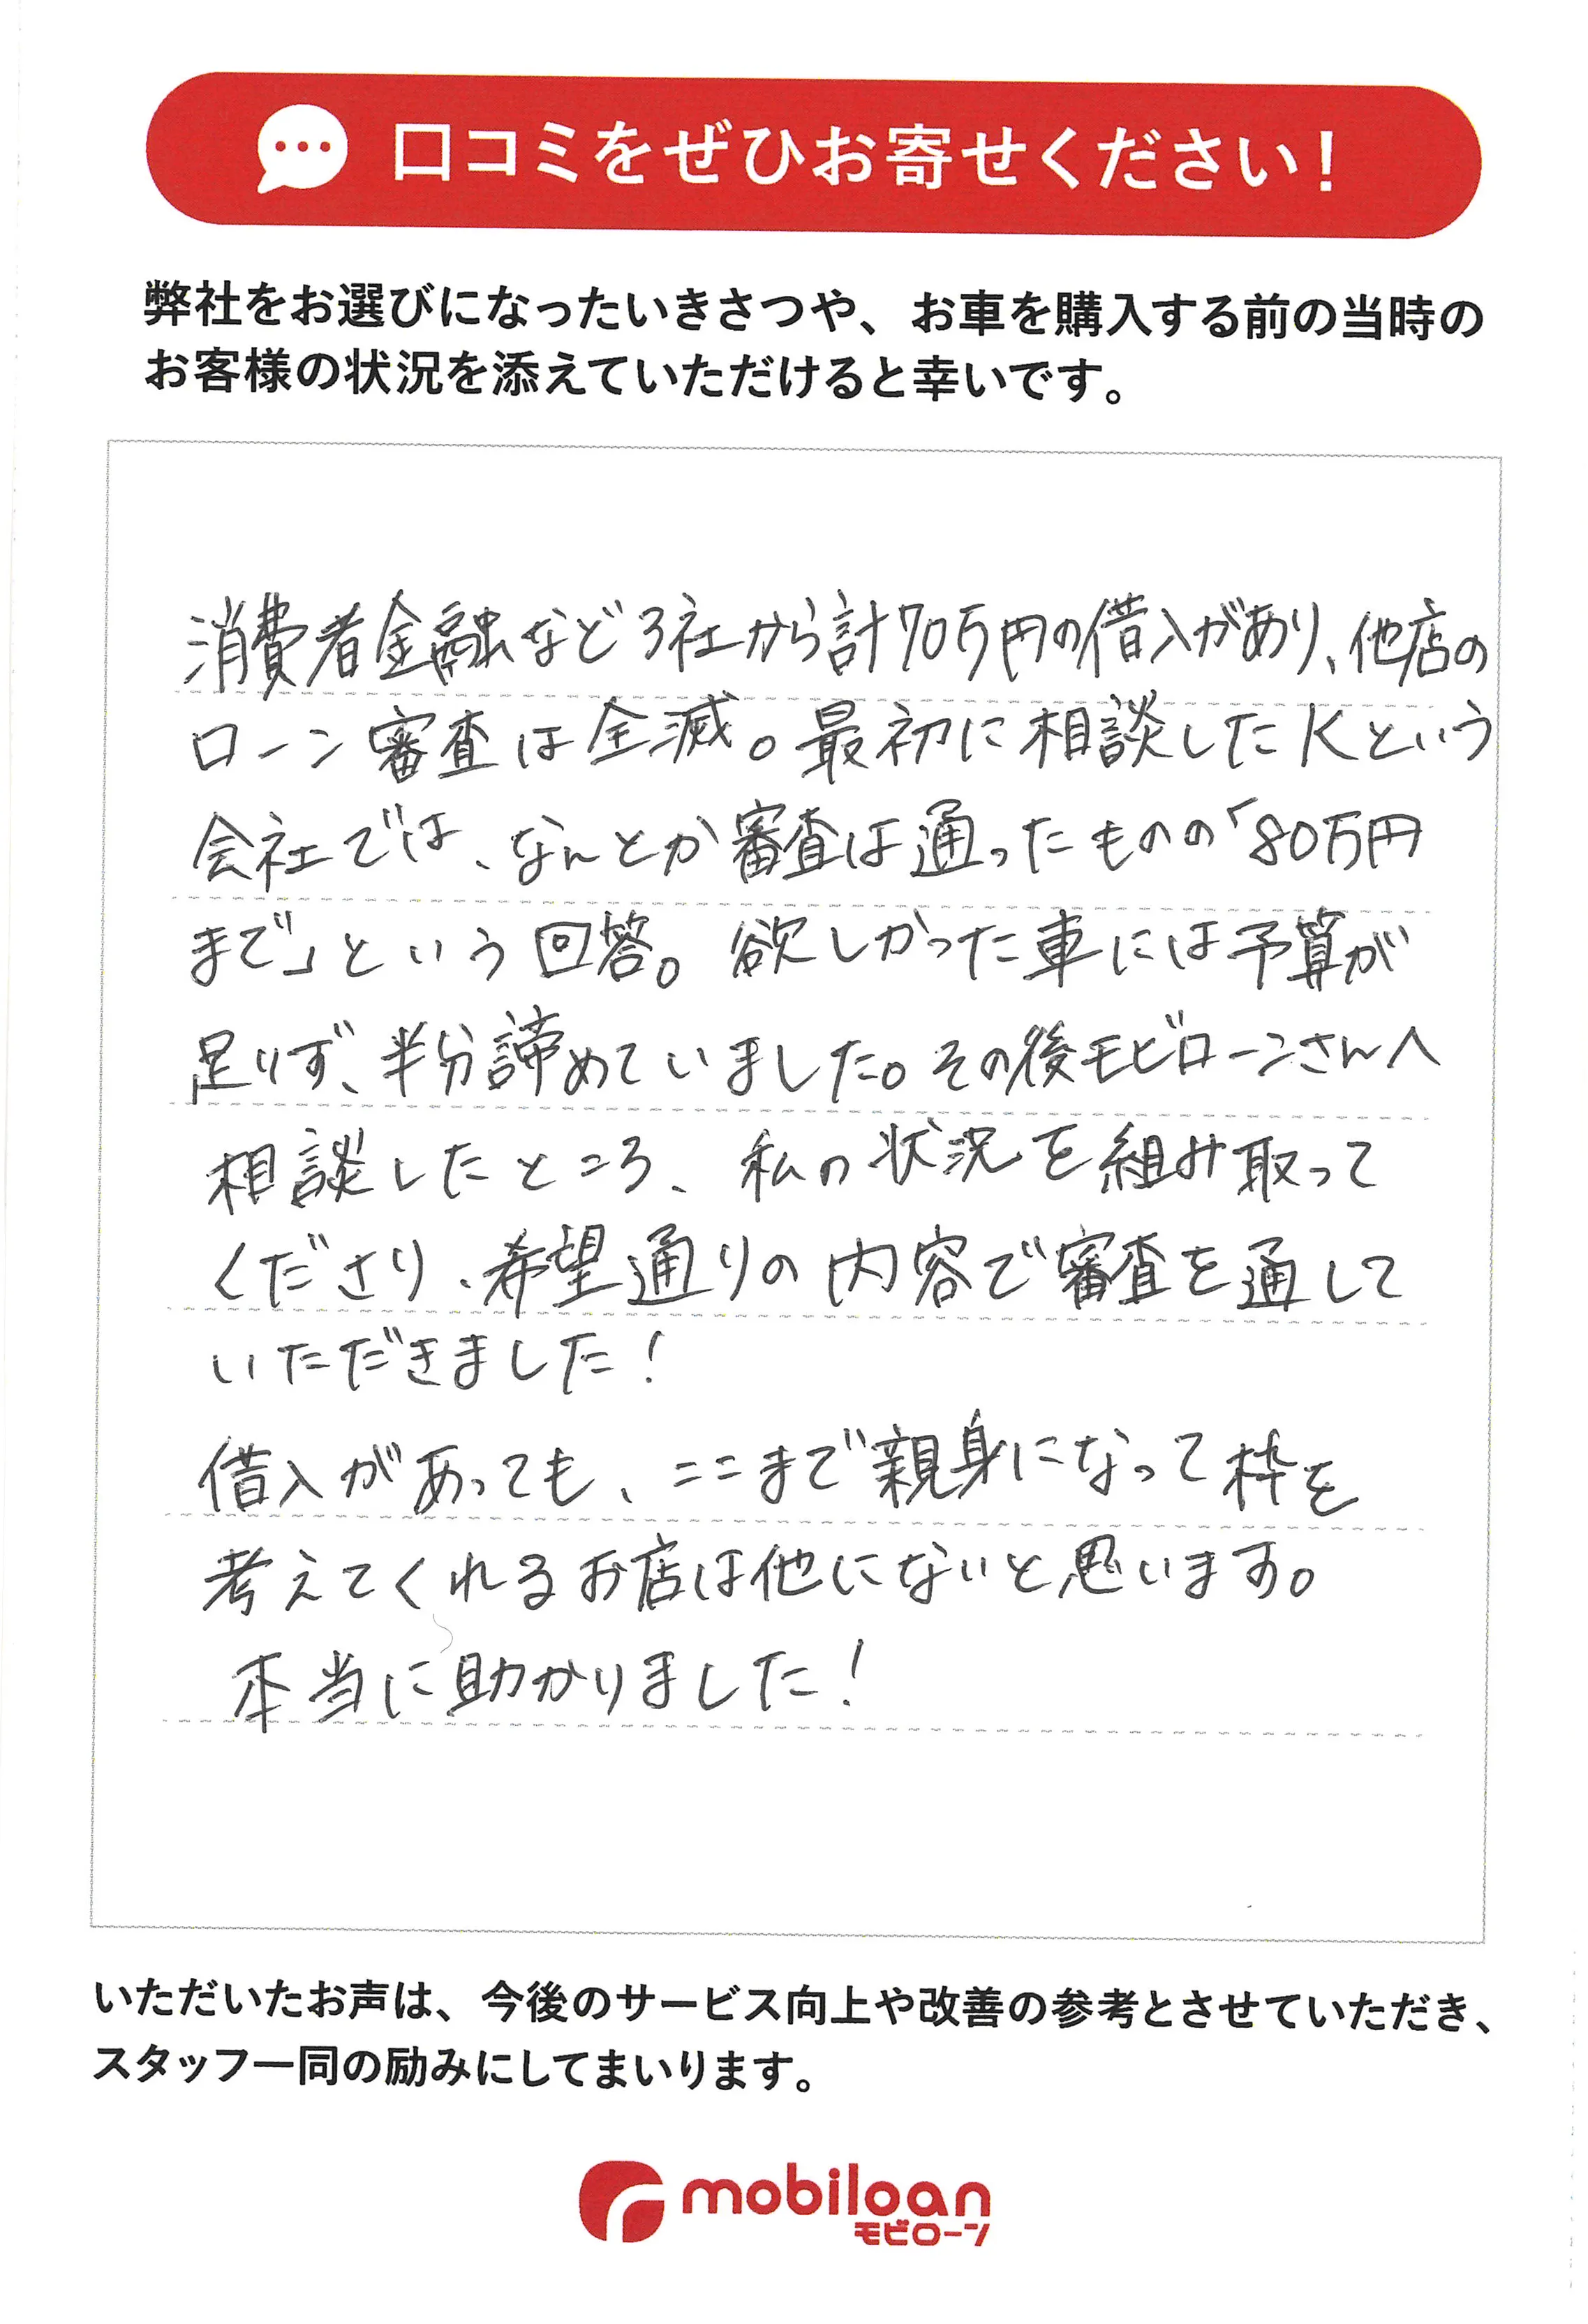 口コミをぜひお寄せください！
弊社をお選びになったいきさつや、お車を購入する前の当時の
お客様の状況を添えていただけると幸いです。
消費者金融など3社から計70万円の借入があり、他店の
ローン審査は全滅。最初に相談したKという
会社では、なんとか審査は通ったものの「80万円
まで」という回答。欲しかった車には予算が
足りず、半分諦めていました。その後モビローンさんへ
相談したところ、私の状況を組み取って
くださり、希望通りの内容で審査を通して
いただきました！
借入があっても、ここまで親身になって枠を
考えてくれるお店は他にないと思います。
本当に助かりました！
いただいたお声は、今後のサービス向上や改善の参考とさせていただき、
スタッフ一同の励みにしてまいります。
mobiloan
モビローン